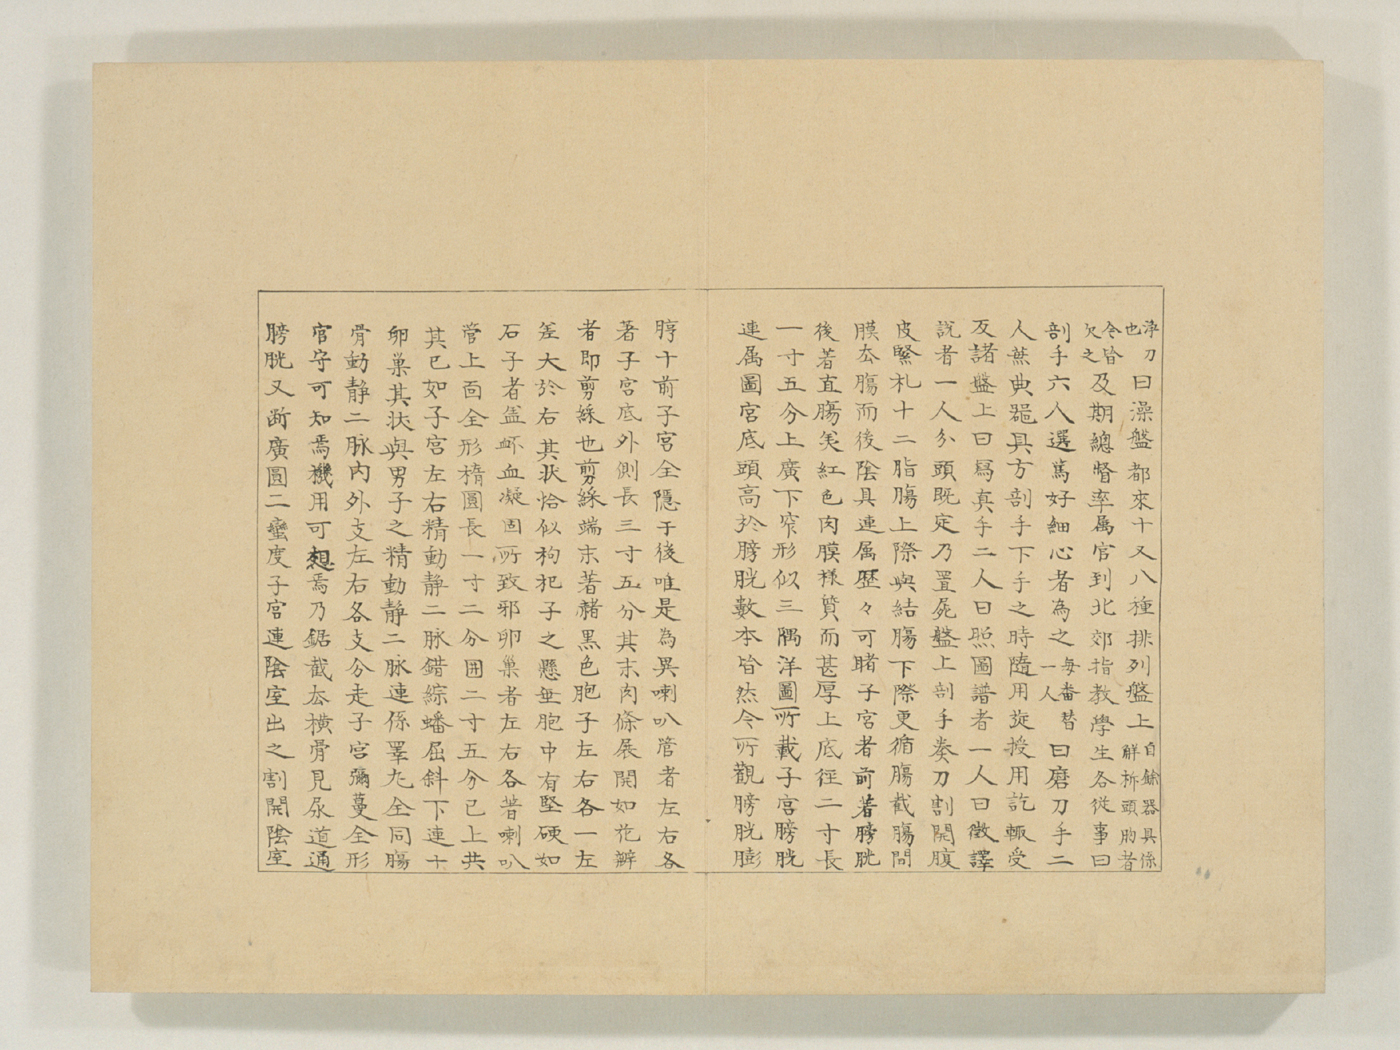 淨刀曰澡盤都來十又八種排列盤上自餘器具係解柝頭肋者
也今皆欠之及期總督率属官到北郊指教學生各從事曰
剖手六人選篤好細心者為之每畨替一人曰磨刀手二
人蕪典噐具方剖手下手之時隨用㫌授用訖輙受
反諸盤上曰寫真手二人曰照圖譜者一人曰徴譯
說者一人分頭既定乃置屍盤上剖手奏刀割開腹
皮緊札十二脂膓上際與結膓下際更循膓截膓問
膜厺膓而後陰具連属歴々可睹子宮者前著膀胱
後著直膓美紅色肉膜様質而甚厚上底徑二寸長
一寸五分上廣下窄形似三隅洋圖所載子宮膀胱
連属圖宮底頭高於膀胱數本皆然今所觀膀胱膨
脝十前子宮全隱于後唯是為異喇叭管者左右各
著子宮底外側長三寸五分其末肉條展開如花瓣
者即剪綵也剪綵端末著赭黒色胞子左右各一左
差大於右其状恰似枸杞子之懸埀胞中有堅硬如
石子者盖衃血凝固所致邪卵巢者左右各著喇叭
管上面全形楕圓長一寸二分囲二寸五分已上共
其已如子宮左右精動靜二脉錯綜蟠屈斜下連十
卵巢其状與男子之精動靜二脉連係睪丸全同膓
骨動靜二脉内外支左右各支分走子宮彌蔓全形
官守可知焉機用可想焉乃鋸截厺横骨見尿道通
膀胱又斷廣圓二蠻度子宮連陰室出之割開陰室